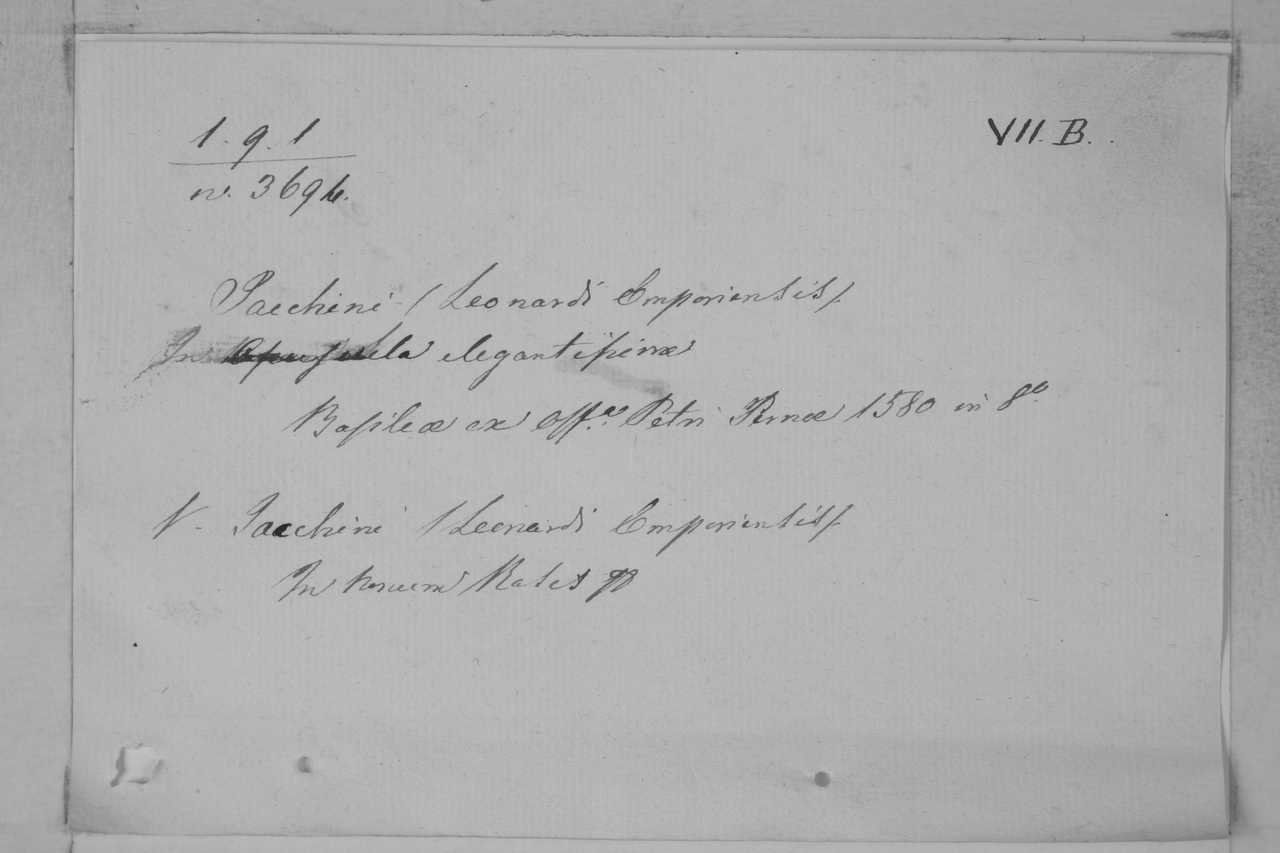 1. 9. 1
VII. B.
n. 3694.
Jacchini (Leonardi Emporiensis).
Opuscula elegantissima
Basileæ ex Off.ª Petri Pernæ 1580 in 8º
V. Jacchini (Leonardi Emporiensis).
In Rasis